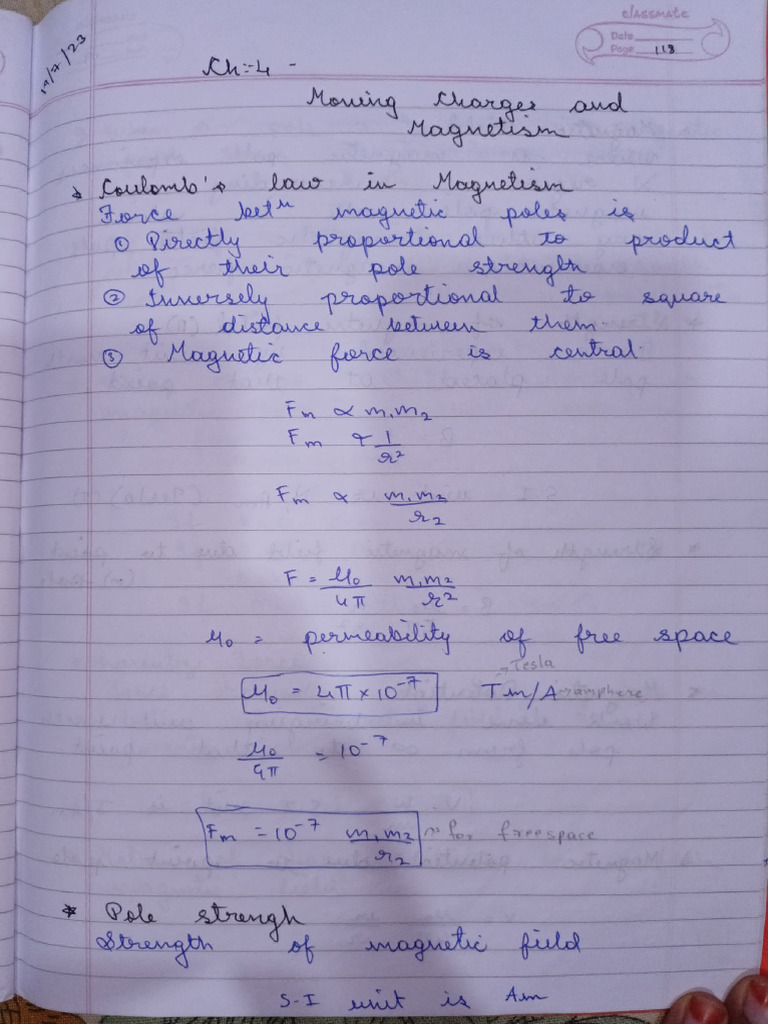 classmate
Date
Page 118
Ch:-4 -
Moving Charges and
Magnetism
Coulomb's law in Magnetism
Force betⁿ magnetic poles is
① Directly proportional to product
of their pole strength
② Inversely proportional to square
of distance between them.
③ Magnetic force is central.
Fm ∝ m₁m₂
Fm ∝ 1/r²
Fm ∝ m₁m₂/r₂
F = μ₀/4π m₁m₂/r²
μ₀ = permeability of free space
μ₀ = 4π × 10⁻⁷ Tm/A → Tesla → amphere
μ₀/4π = 10⁻⁷
Fm = 10⁻⁷ m₁m₂/r₂ for freespace
* Pole strengh
Strength of magnetic field
S-I unit is Am